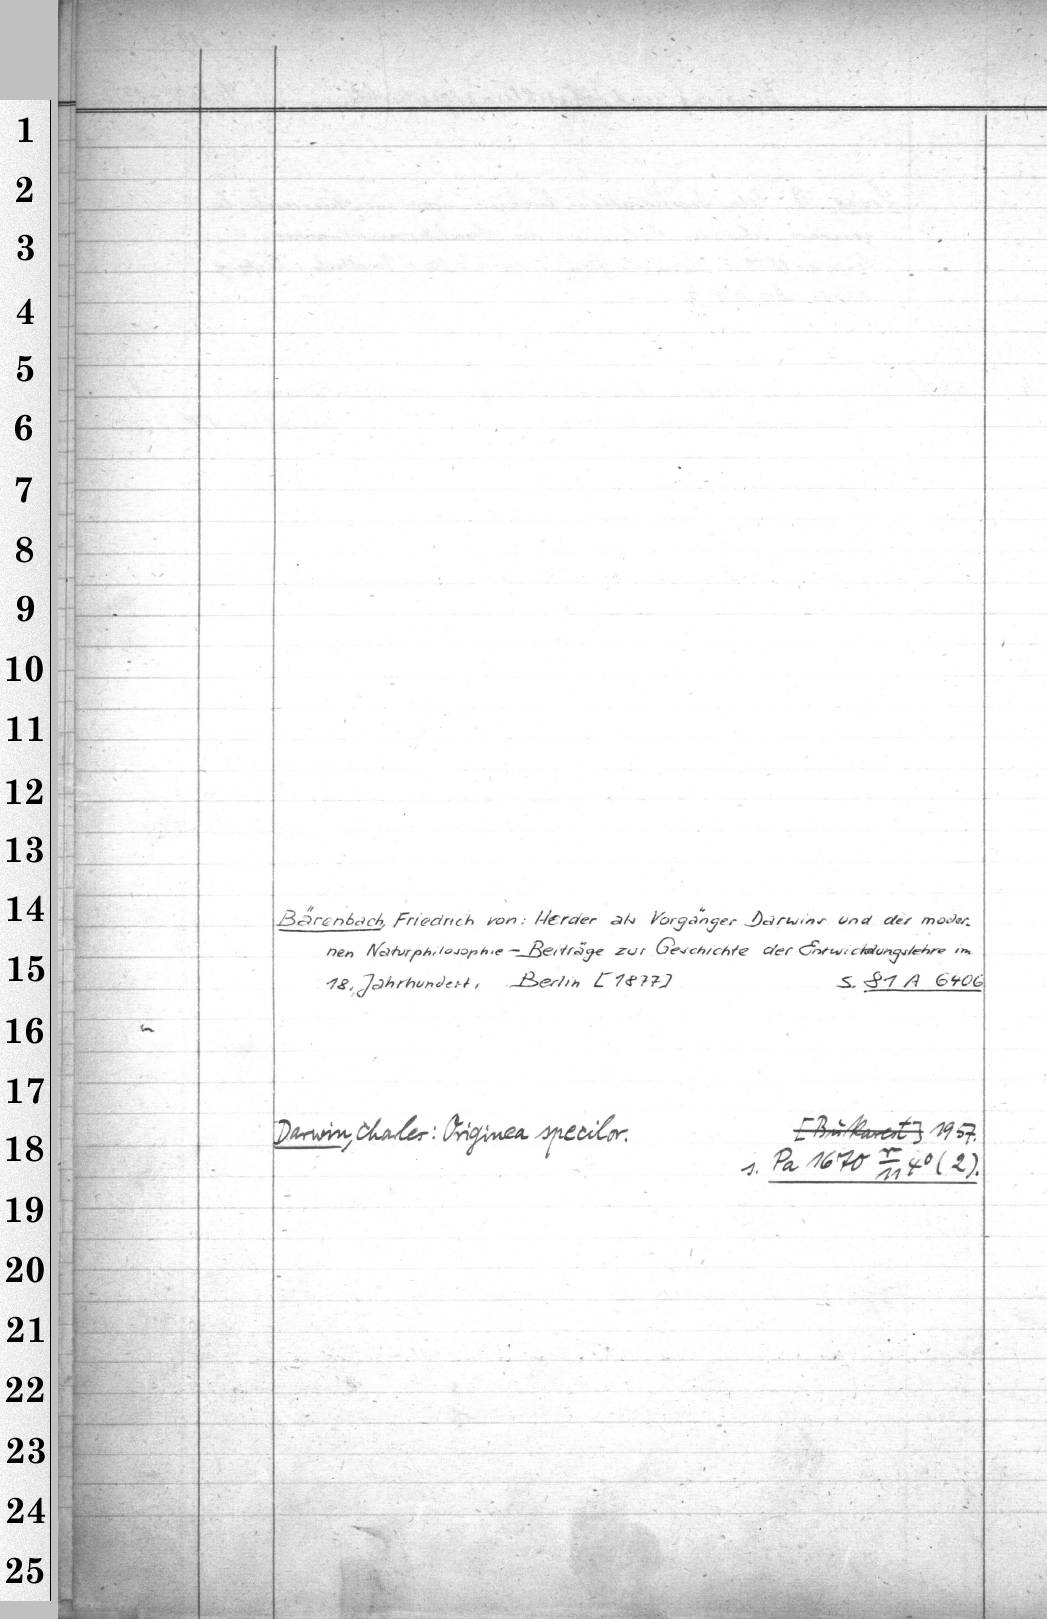 1
2
3
4
5
6
7
8
9
10
11
12
13
14
Bärenbach, Friedrich von: Herder als Vorgänger Darwins und der moder-
nen Naturphilosophie - Beiträge zur Geschichte der Entwicklungslehre im
15
18. Jahrhundert. Berlin [1877] s. 81 A 6406
16
17
Darwin, Charles: Originea specilor. [Bukarest] 1957.
18
s. Pa 1670 40 (2).
19
20
21
22
23
24
25